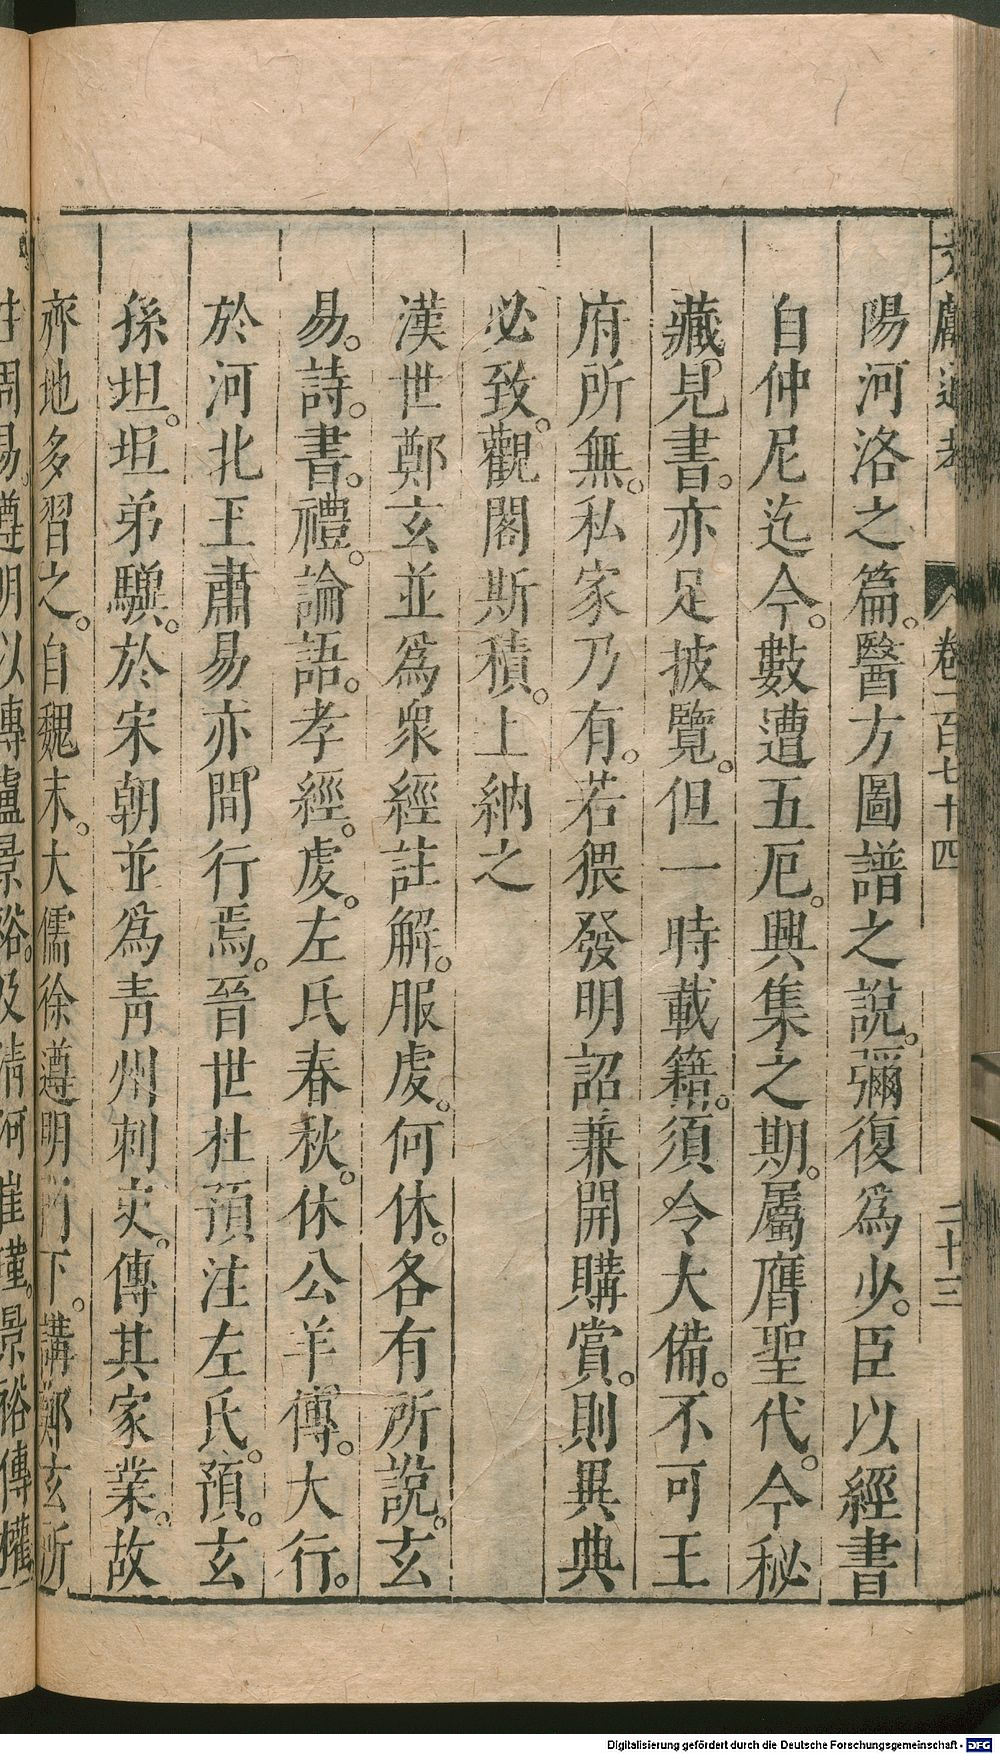 文獻通考 卷一百七十四 二十三
陽河洛之篇。醫方圖譜之說。彌復爲少。臣以經書
自仲尼迄今。數遭五厄。興集之期。屬膺聖代。今秘
藏見書。亦足披覽。但一時載籍。須令大備。不可王
府所無。私家乃有。若猥發明詔兼開購賞。則異典
必致。觀閣斯積。上納之
漢世鄭玄並爲衆經註解。服虔。何休。各有所說。玄
易。詩。書。禮。論語。孝經。虔。左氏春秋。休公羊傳。大行。
於河北王肅易亦間行焉。晉世杜預注左氏。預。玄
孫坦。坦弟驥。於宋朝並爲靑州刺史。傳其家業。故
齊地多習之。自魏末。大儒徐遵明門下。講鄭玄所
註周易。遵明以傳盧景裕。及淸河崔瑾。景裕傳權
Digitalisierung gefördert durch die Deutsche Forschungsgemeinschaft - DFG